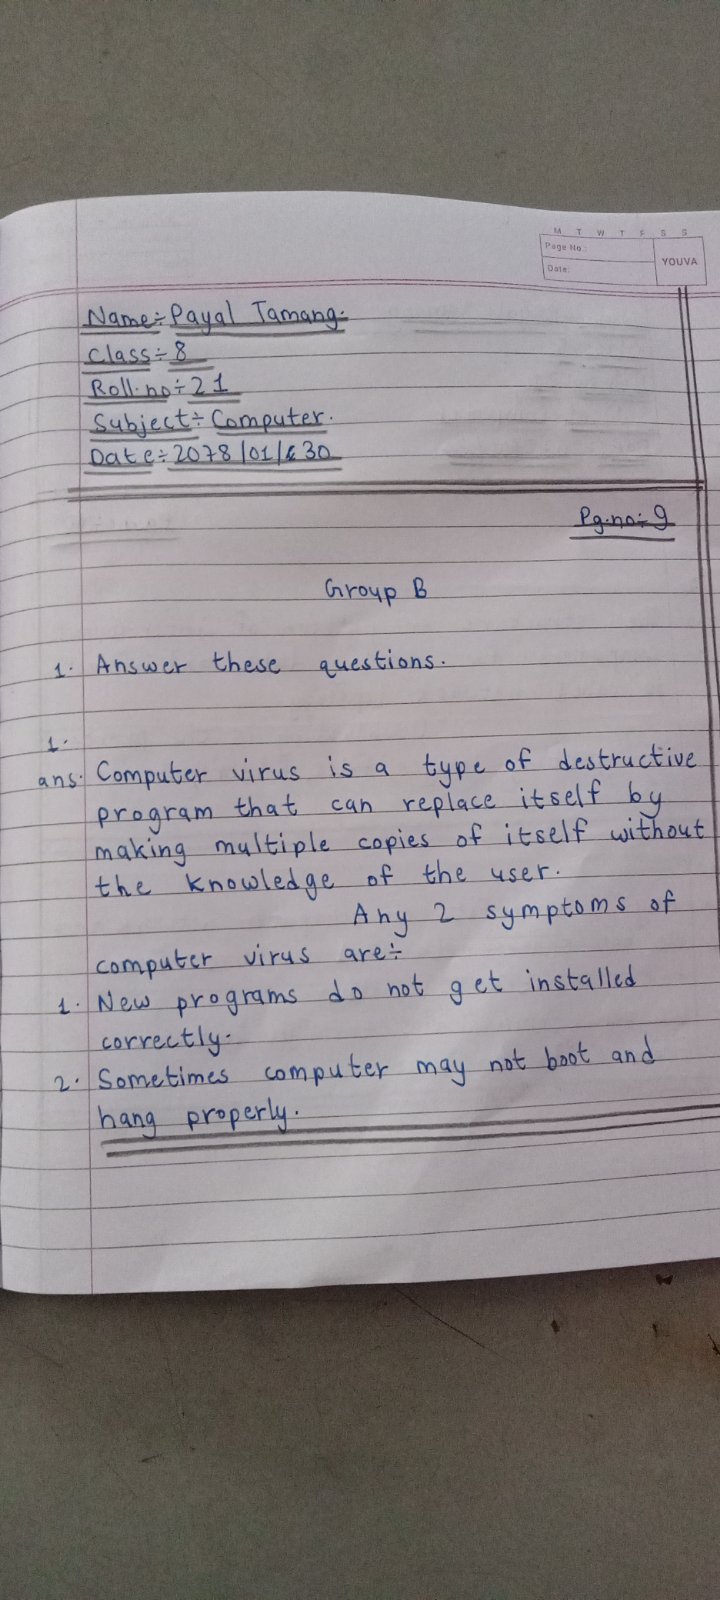 M T W T F S S
Page No.:
Date:
YOUVA
Name:- Payal Tamang.
Class:- 8
Roll.no:- 21
Subject:- Computer.
Date:- 2078/01/30
Pg.no:- 9
Group B
1. Answer these questions.
1.
ans. Computer virus is a type of destructive
program that can replace itself by
making multiple copies of itself without
the knowledge of the user.
Any 2 symptoms of
computer virus are:-
1. New programs do not get installed
correctly.
2. Sometimes computer may not boot and
hang properly.